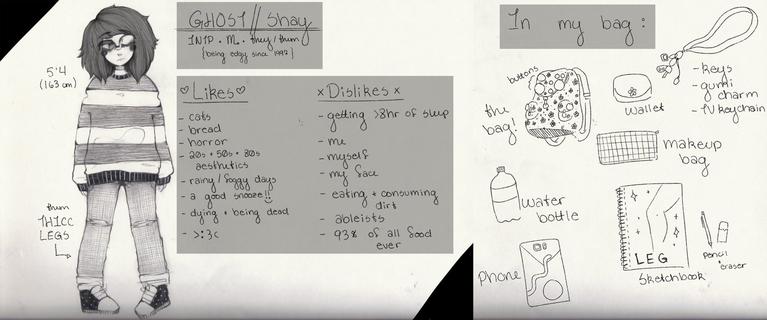 GHOST // Shay
INTP • M • they/them
(being edgy since 1997)
5'4
(163 cm)
them
THICC
LEGS
♡Likes♡
- cats
- bread
- horror
- 20s + 50s + 80s
aesthetics
- rainy/foggy days
- a good snooze!!
- dying + being dead
- >:3c
x Dislikes x
- getting >8hr of sleep
- me
- myself
- my face
- eating + consuming
dirt
- ableists
- 93% of all food
ever
In my bag:
buttons
the
bag!
wallet
- keys
- gumi
charm
- TV keychain
makeup
bag
water
bottle
phone
LEG
Sketchbook
pencil
+
eraser